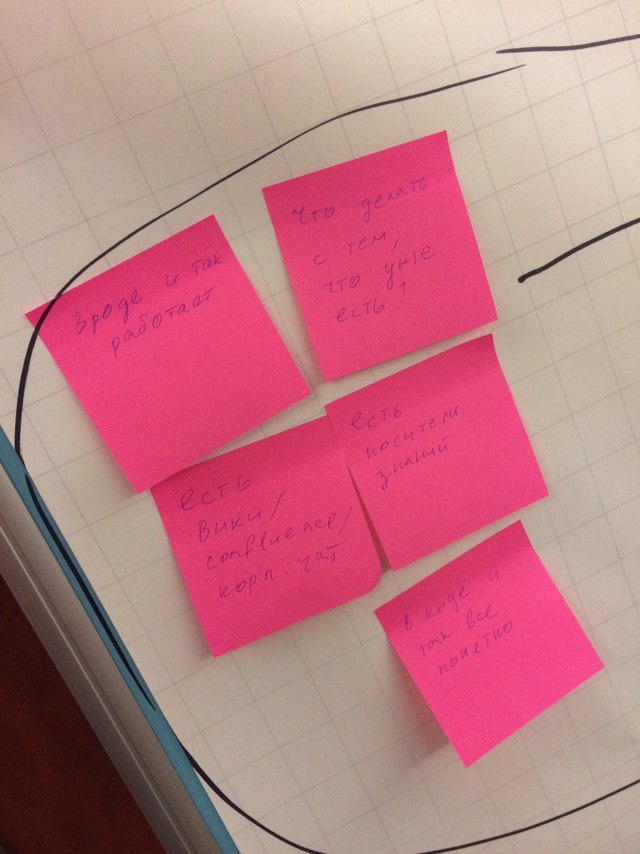 Вроде и так
работает
Что делать
с тем,
что уже
есть?
есть
носители
знаний
есть
вики/
confluence/
корп. чат
в коде и
так все
понетно